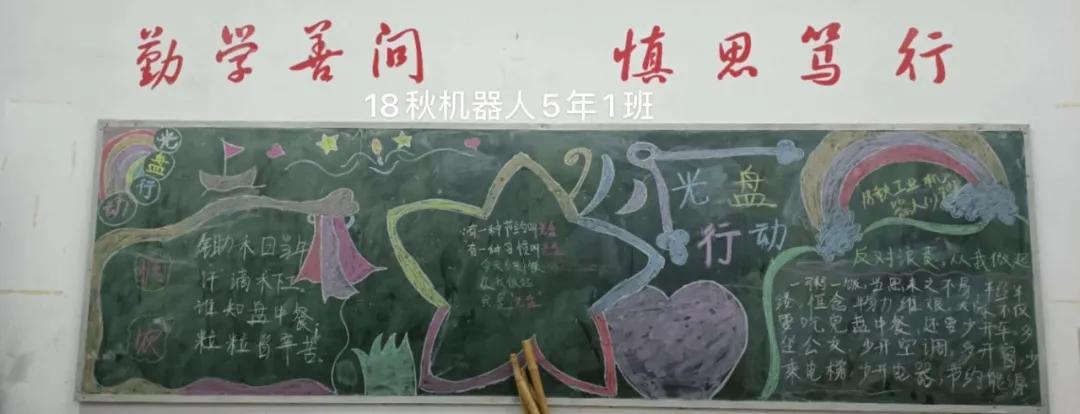 勤学善问 慎思笃行
18秋机器人5年1班
光盘行动
锄禾日当午
汗滴禾下土
谁知盘中餐，
粒粒皆辛苦。
有一种节约叫光盘
有一种习惯叫光盘
光盘行动
18秋工业机
器人
反对浪费，从我做起
一粥一饭，当思来之不易，半丝半
缕，恒念物力维艰。
要吃完盘中餐，还要少开车，多
坐公交，少开空调，多开窗，少
来电梯，少开电器，节约能源